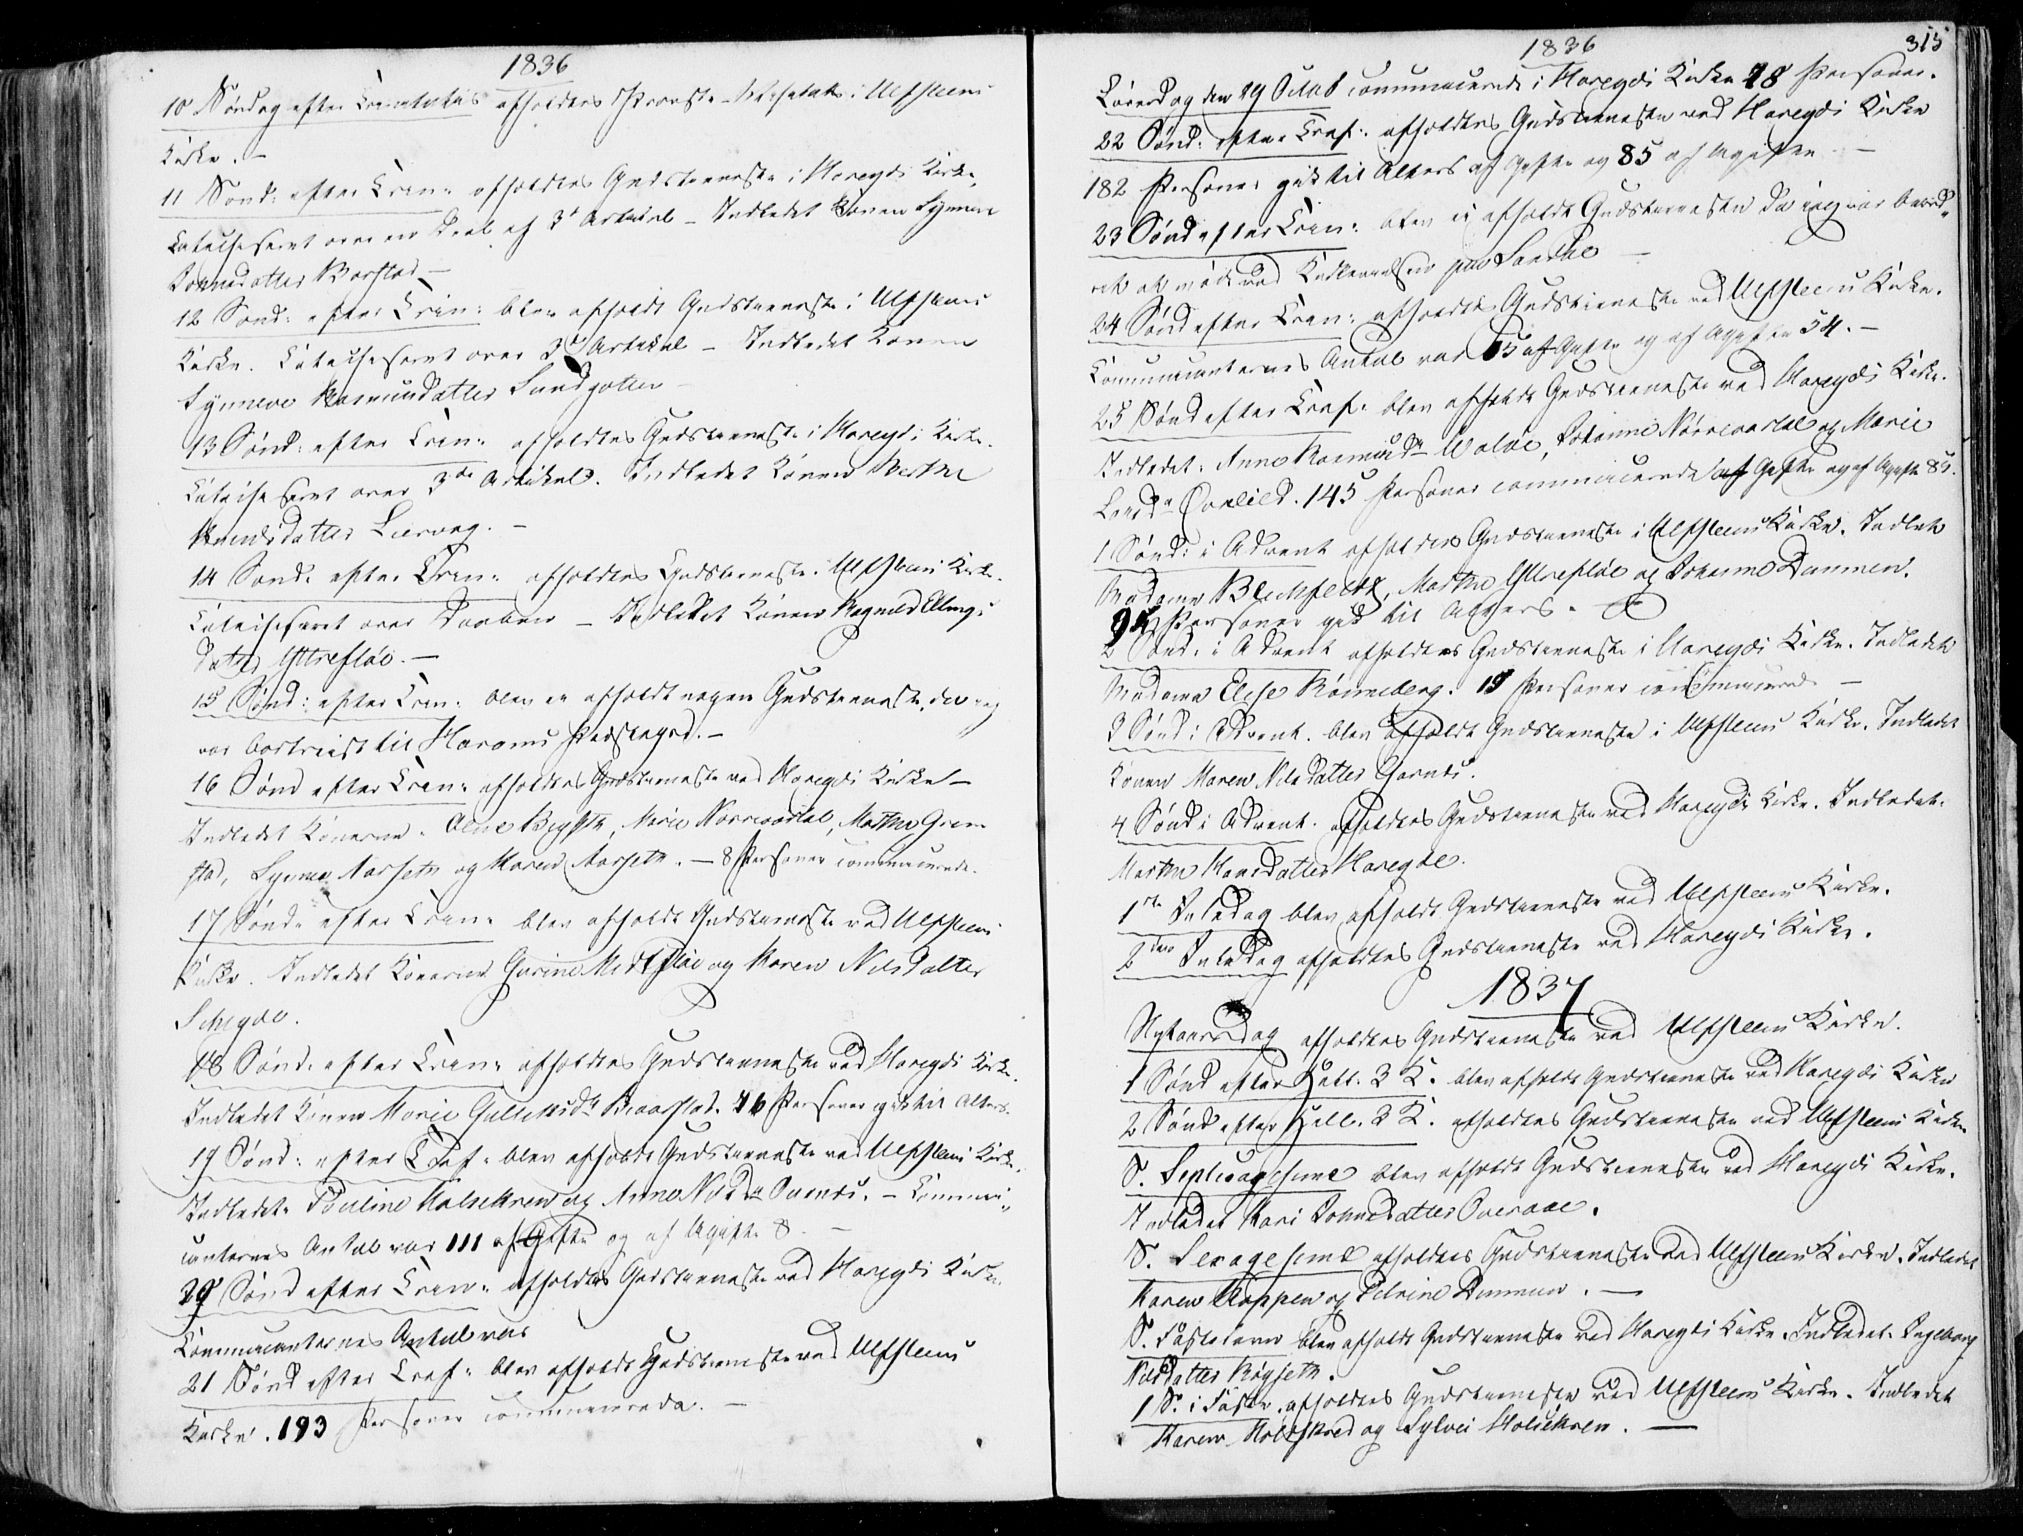 1836
10 Søndag efter Trinitatis afholdtes Provste-Visitats i Ulfsteens
Kirke. –
11 Sønd: efter Trin: afholdtes Gudstieneste i Hareyds Kirke,
Catechiseret over en Deel af 3d Artikel – Indledet Konen Synneve
Johnsdatter Barstad –
12 Sønd: efter Trin: blev afholdt Gudstieneste i Ulfsteens
Kirke. Catechiseret over 3d Artikel – Indledet Konen
Synneve Rasmusdatter Sundgotten –
13 Sønd: efter Trin: afholdtes Gudstieneste i Hareyds Kirke.
Catechiseret over 3die Artikel. Indledet Konen Berthe
Knudsdatter Liavaag. –
14 Sønd: efter Trin: afholdtes Gudstieneste i Ulfsteens Kirke.
Catechiseret over Daaben – Indledet Konen Ragnild Ellings
datter Yttrefløe. –
15 Sønd: efter Trin: blev ei afholdt nogen Gudstieneste, da jeg
var bortreist til Harams Præstegjed. –
16 Sønd efter Trin: afholdtes Gudstieneste ved Hareyds Kirke –
Indledet Konerne: Oline Brygsth, Marie Nørrevartal, Marthe Grim
stad, Synneve Aarseth og Maren Aarseth. – 8 Personer communicerede.
17 Sønd: efter Trin: blev afholdt Gudstieneste ved Ulfsteens
Kirke. Indledet Konerne Gurine Midtfløe og Maren Nilsdatter
Scheyde.
18 Sønd: efter Trin: afholdtes Gudstieneste ved Hareyds Kirke.
Indledet Konen Marie Gulliksdtr Braastad. 76 Personer gik til Alters.
19 Sønd: efter Tref: blev afholdt Gudstieneste ved Ulfsteens Kirke.
Indledet: Pauline Holsekren og Anne Nilsdtr Overaas. – Communi
canternes Antal var 111 af Gifte og af Ugifte 8. –
20 Sønd efter Trin: afholdtes Gudstieneste ved Hareyds Kirke.
Communicanternes Antal var
21 Sønd efter Tref: blev afholdt Gudstieneste ved Ulfsteens
Kirke. 193 Personer communicerede. –
1836
315
Løverdag den 29 Octob communicerede i Hareyds Kirke 78 Personer.
22 Sønd: efter Tref: afholdtes Gudstieneste ved Hareyds Kirke
182 Personer gik til Alters af Gifte og 85 af Ugifte –
23 Sønd efter Trin: blev ei afholdt Gudstieneste da jeg var beord
ret at møde ved Kirkeindvielsen paa Sande –
24 Sønd efter Trin: afholdtes Gudstieneste ved Ulfsteens Kirke.
Communicanternes Antal var 65 af Gifte og af Ugifte 54. –
25 Sønd efter Tref: blev afholdt Gudstieneste ved Hareyds Kirke.
Indledet: Anne Rasmusdtr Waløe, Johanne Nørrevartal og Marie
Larsdtr Qvelild. 145 Personer communicerede af Gifte og af Ugifte 85.
1 Sønd: i Advent afholdtes Gudstieneste i Ulfsteens Kirke. Indledet
Madame Blechfeldt, Marthe Yttrefløe og Johanne Dummen.
94 Personer gik til Alters. –
2 Sønd: i Advent afholdtes Gudstieneste i Hareyds Kirke. Indledet
Madame Elise Rønneberg. 15 Personer communicerede –
3 Sønd: i Advent. blev afholdt Gudstieneste i Ulfsteens Kirke. Indledet
Konen Maren Nilsdatter Garnes.
4 Sønd i Advent. afholdtes Gudstieneste ved Hareyds Kirke. Indledet:
Marthe Hansdatter Hareyde.
1ste Juledag blev afholdt Gudstieneste ved Ulfsteens Kirke.
2den Juledag afholdtes Gudstieneste ved Hareyds Kirke.
1837
Nytaarsdag afholdtes Gudstieneste ved Ulfsteens Kirke.
1 Sønd efter Hell. 3 K. blev afholdt Gudstieneste ved Hareyds Kirke
2 Sønd efter Hell. 3 K. afholdtes Gudstieneste ved Ulfsteens Kirke
S. Septuagesima blev afholdt Gudstieneste ved Hareyds Kirke.
Indledet Kari Johnsdatter Overaae.
S. Sexagesima afholdtes Gudstieneste ved Ulfsteens Kirke. Indledet
Karen Kloppen og Petrine Dummen. –
S. Fastelavn blev afholdt Gudstieneste ved Hareyds Kirke. Indledet: Ingeborg
Nilsdatter Røyseth.
1 S. i Faste. afholdtes Gudstieneste ved Ulfsteens Kirke. Indledet
Karen Holsekred og Sylvei Holsekren. –